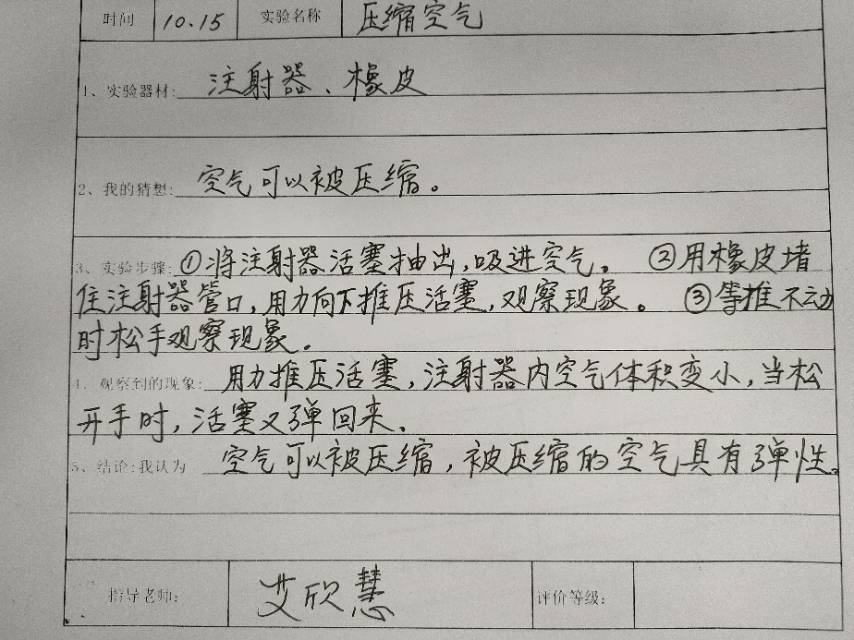 时间 10.15 实验名称 压缩空气
1、实验器材: 注射器、橡皮
2、我的猜想: 空气可以被压缩。
3、实验步骤: ①将注射器活塞抽出,吸进空气。 ②用橡皮堵
住注射器管口,用力向下推压活塞,观察现象。 ③等推不动
时松手观察现象。
4、观察到的现象: 用力推压活塞,注射器内空气体积变小,当松
开手时,活塞又弹回来.
5、结论:我认为 空气可以被压缩,被压缩的空气具有弹性。
指导老师: 艾欣慧 评价等级: